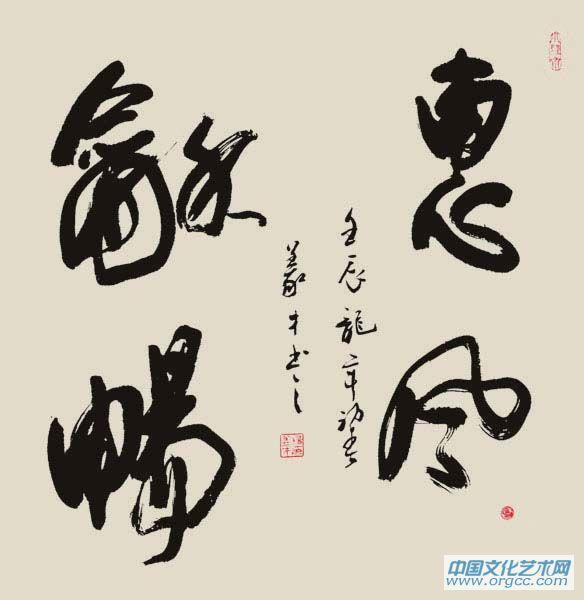 惠风
龢暢
壬辰龍年初春
義才书之
中国文化艺术网
www.orgcc.com